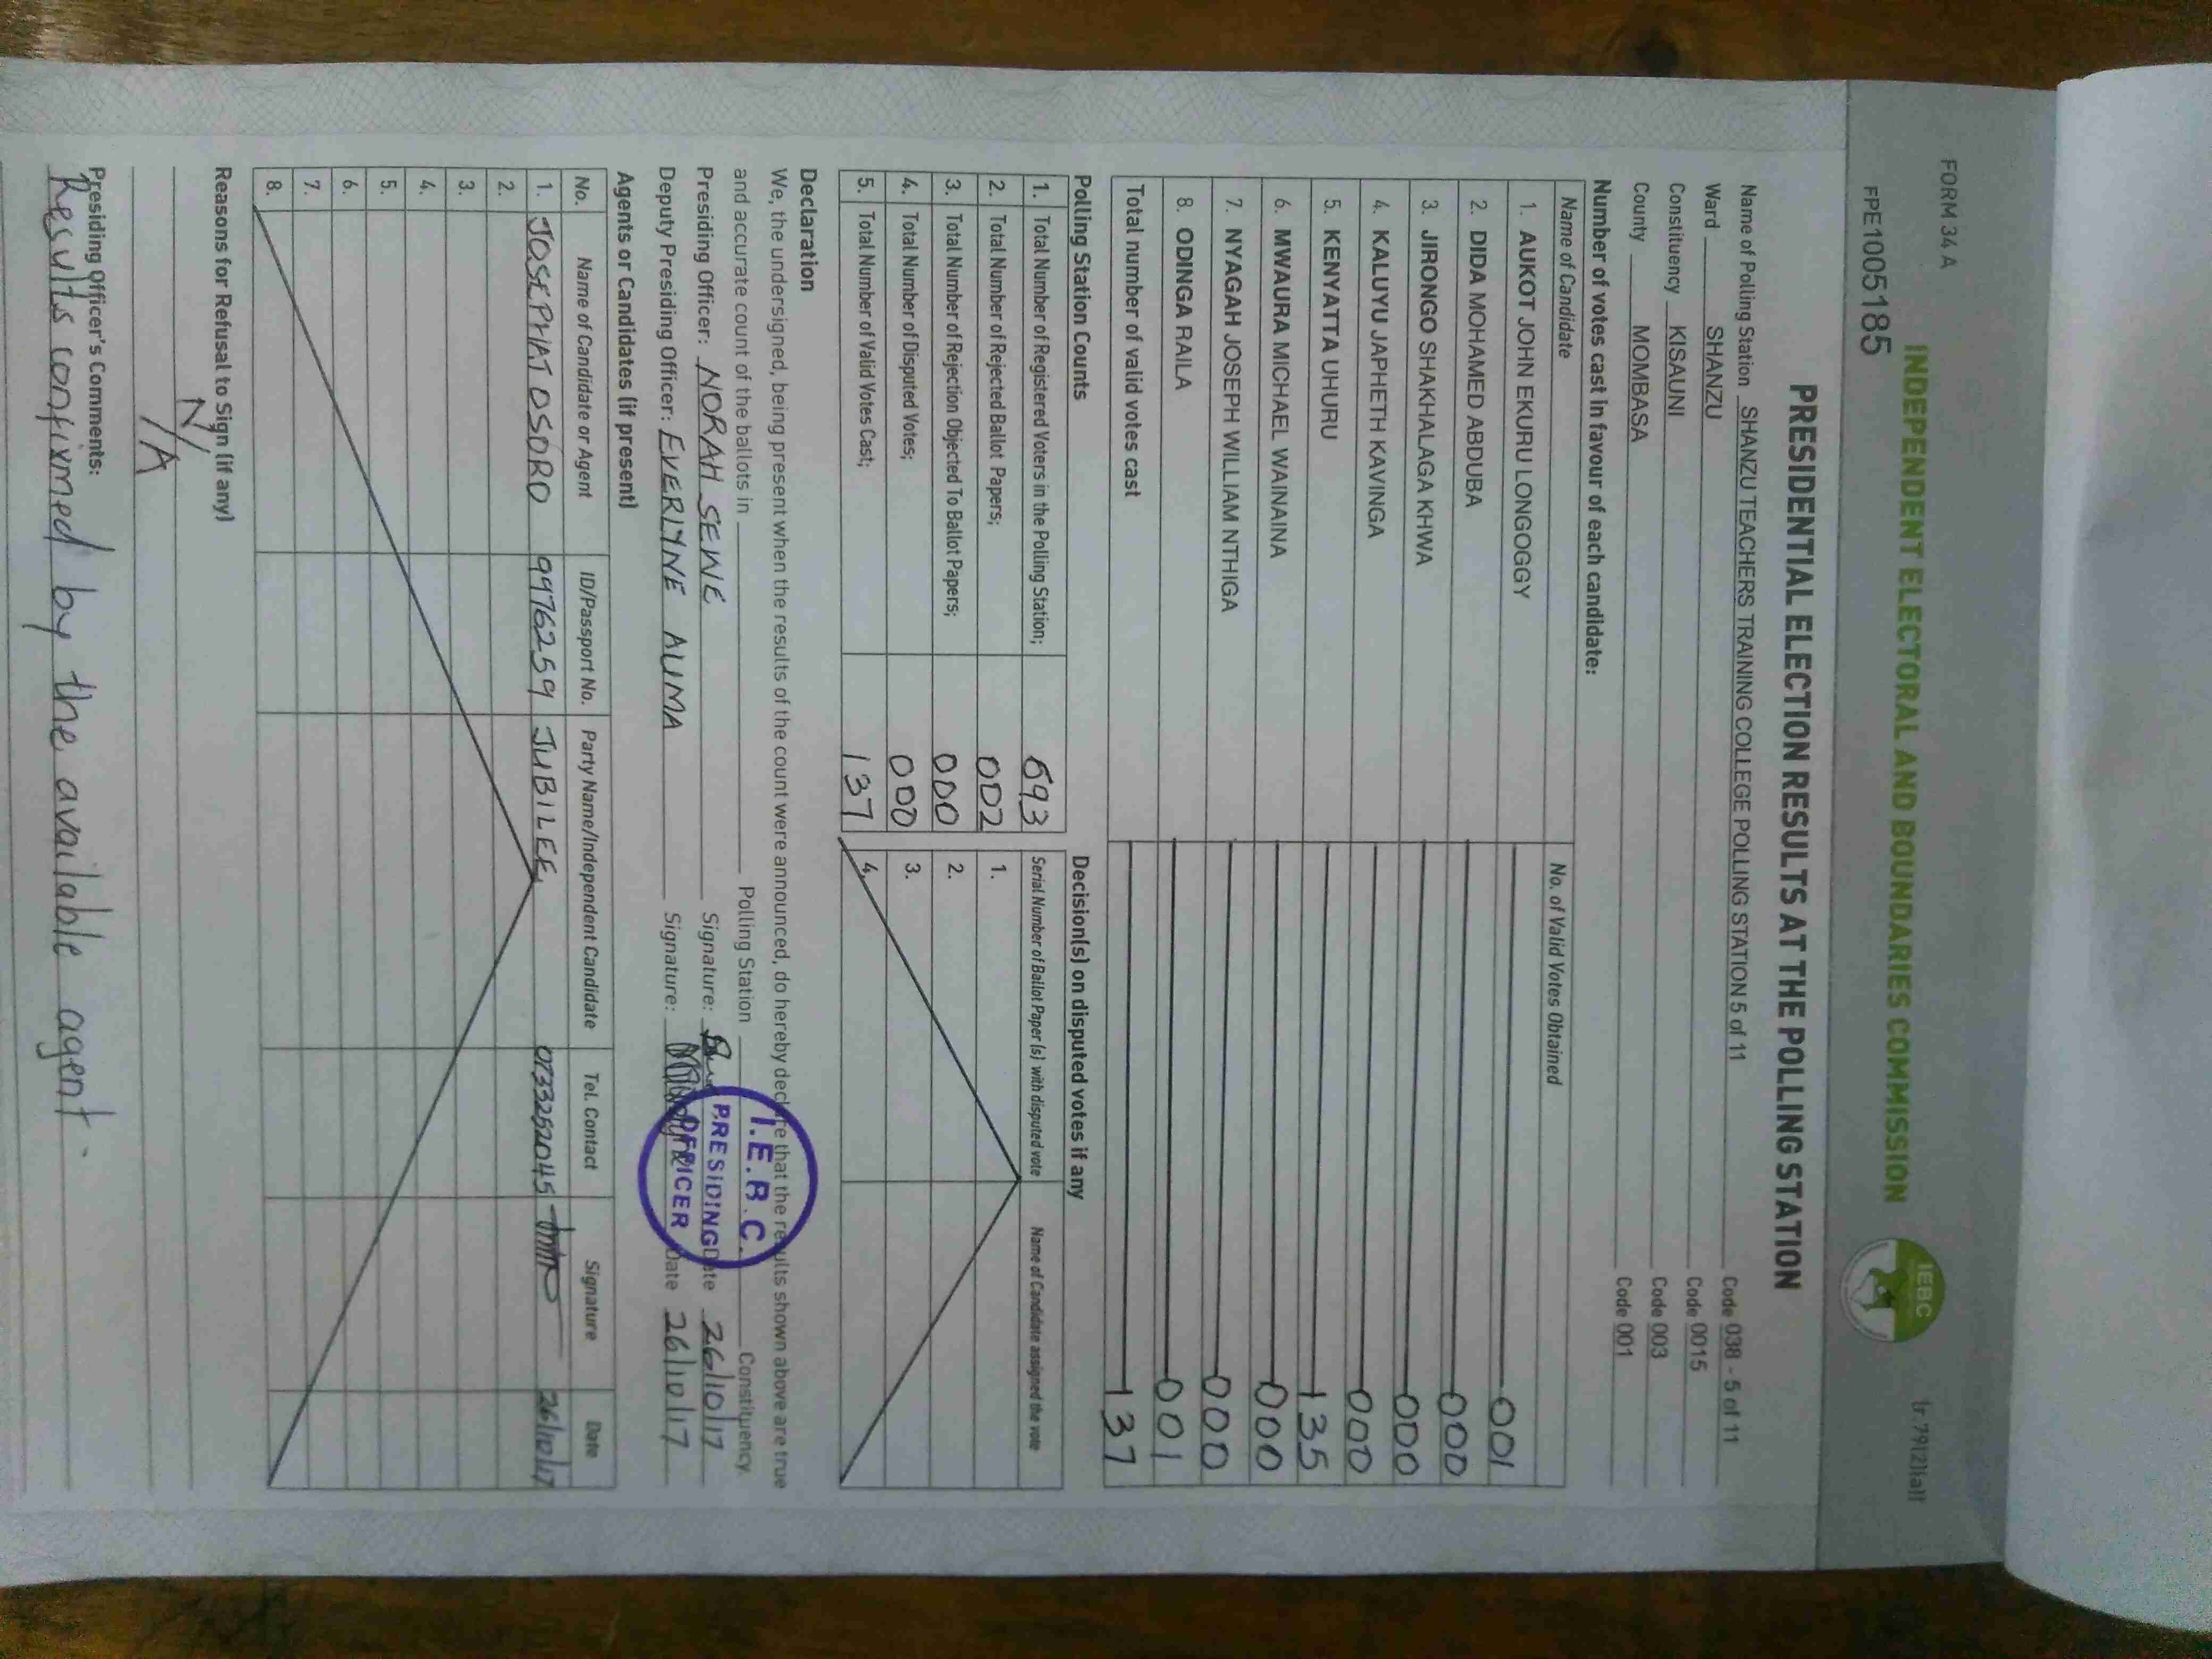 FORM 34 A
INDEPENDENT ELECTORAL AND BOUNDARIES COMMISSION
IEBC
FPE1005185
PRESIDENTIAL ELECTION RESULTS AT THE POLLING STATION
Name of Polling Station SHANZU TEACHERS TRAINING COLLEGE POLLING STATION 5 of 11 Code 038 - 5 of 11
Ward SHANZU Code 0015
Constituency KISAUNI Code 003
County MOMBASA Code 001
Number of votes cast in favour of each candidate:
Name of Candidate No. of Valid Votes Obtained
1. AUKOT JOHN EKURU LONGOGGY 001
2. DIDA MOHAMED ABDUBA 000
3. JIRONGO SHAKHALAGA KHWA 000
4. KALUYU JAPHETH KAVINGA 000
5. KENYATTA UHURU 135
6. MWAURA MICHAEL WAINAINA 000
7. NYAGAH JOSEPH WILLIAM NTHIGA 000
8. ODINGA RAILA 001
Total number of valid votes cast 137
Polling Station Counts
1. Total Number of Registered Voters in the Polling Station; 693
2. Total Number of Rejected Ballot Papers; 002
3. Total Number of Rejection Objected To Ballot Papers; 000
4. Total Number of Disputed Votes; 000
5. Total Number of Valid Votes Cast; 137
Decision(s) on disputed votes if any
Serial Number of Ballot Paper (s) with disputed vote Name of Candidate assigned the vote
1.
2.
3.
4.
Declaration
We, the undersigned, being present when the results of the count were announced, do hereby declare that the results shown above are true
and accurate count of the ballots in Polling Station Constituency
Presiding Officer: NORAH SEWE Signature: Date 26/10/17
Deputy Presiding Officer: EVERLYNE AUMA Signature: Date 26/10/17
I.E.B.C.
PRESIDING
OFFICER
Agents or Candidates (if present)
No. Name of Candidate or Agent ID/Passport No. Party Name/Independent Candidate Tel. Contact Signature Date
1. JOSEPHAT OSORO 9976259 JUBILEE 0733252045 26/10/17
2.
3.
4.
5.
6.
7.
8.
Reasons for Refusal to Sign (if any)
N/A
Presiding Officer's Comments:
Results confirmed by the available agent.